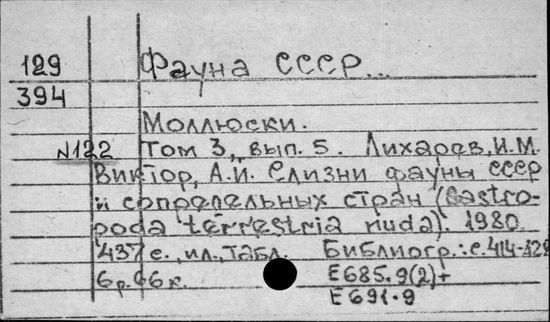 129 Фауна СССР...
394
Моллюски.
N122 Том 3, вып. 5. Лихарев, И.М.
Виктор, А.И. Слизни фауны СССР
и сопредельных стран (Gastro-
poda terrestria nuda). 1980.
437 с., ил., табл. Библиогр.: с. 414-428
6р. 06к. Е685.9(2)+
Е691.9